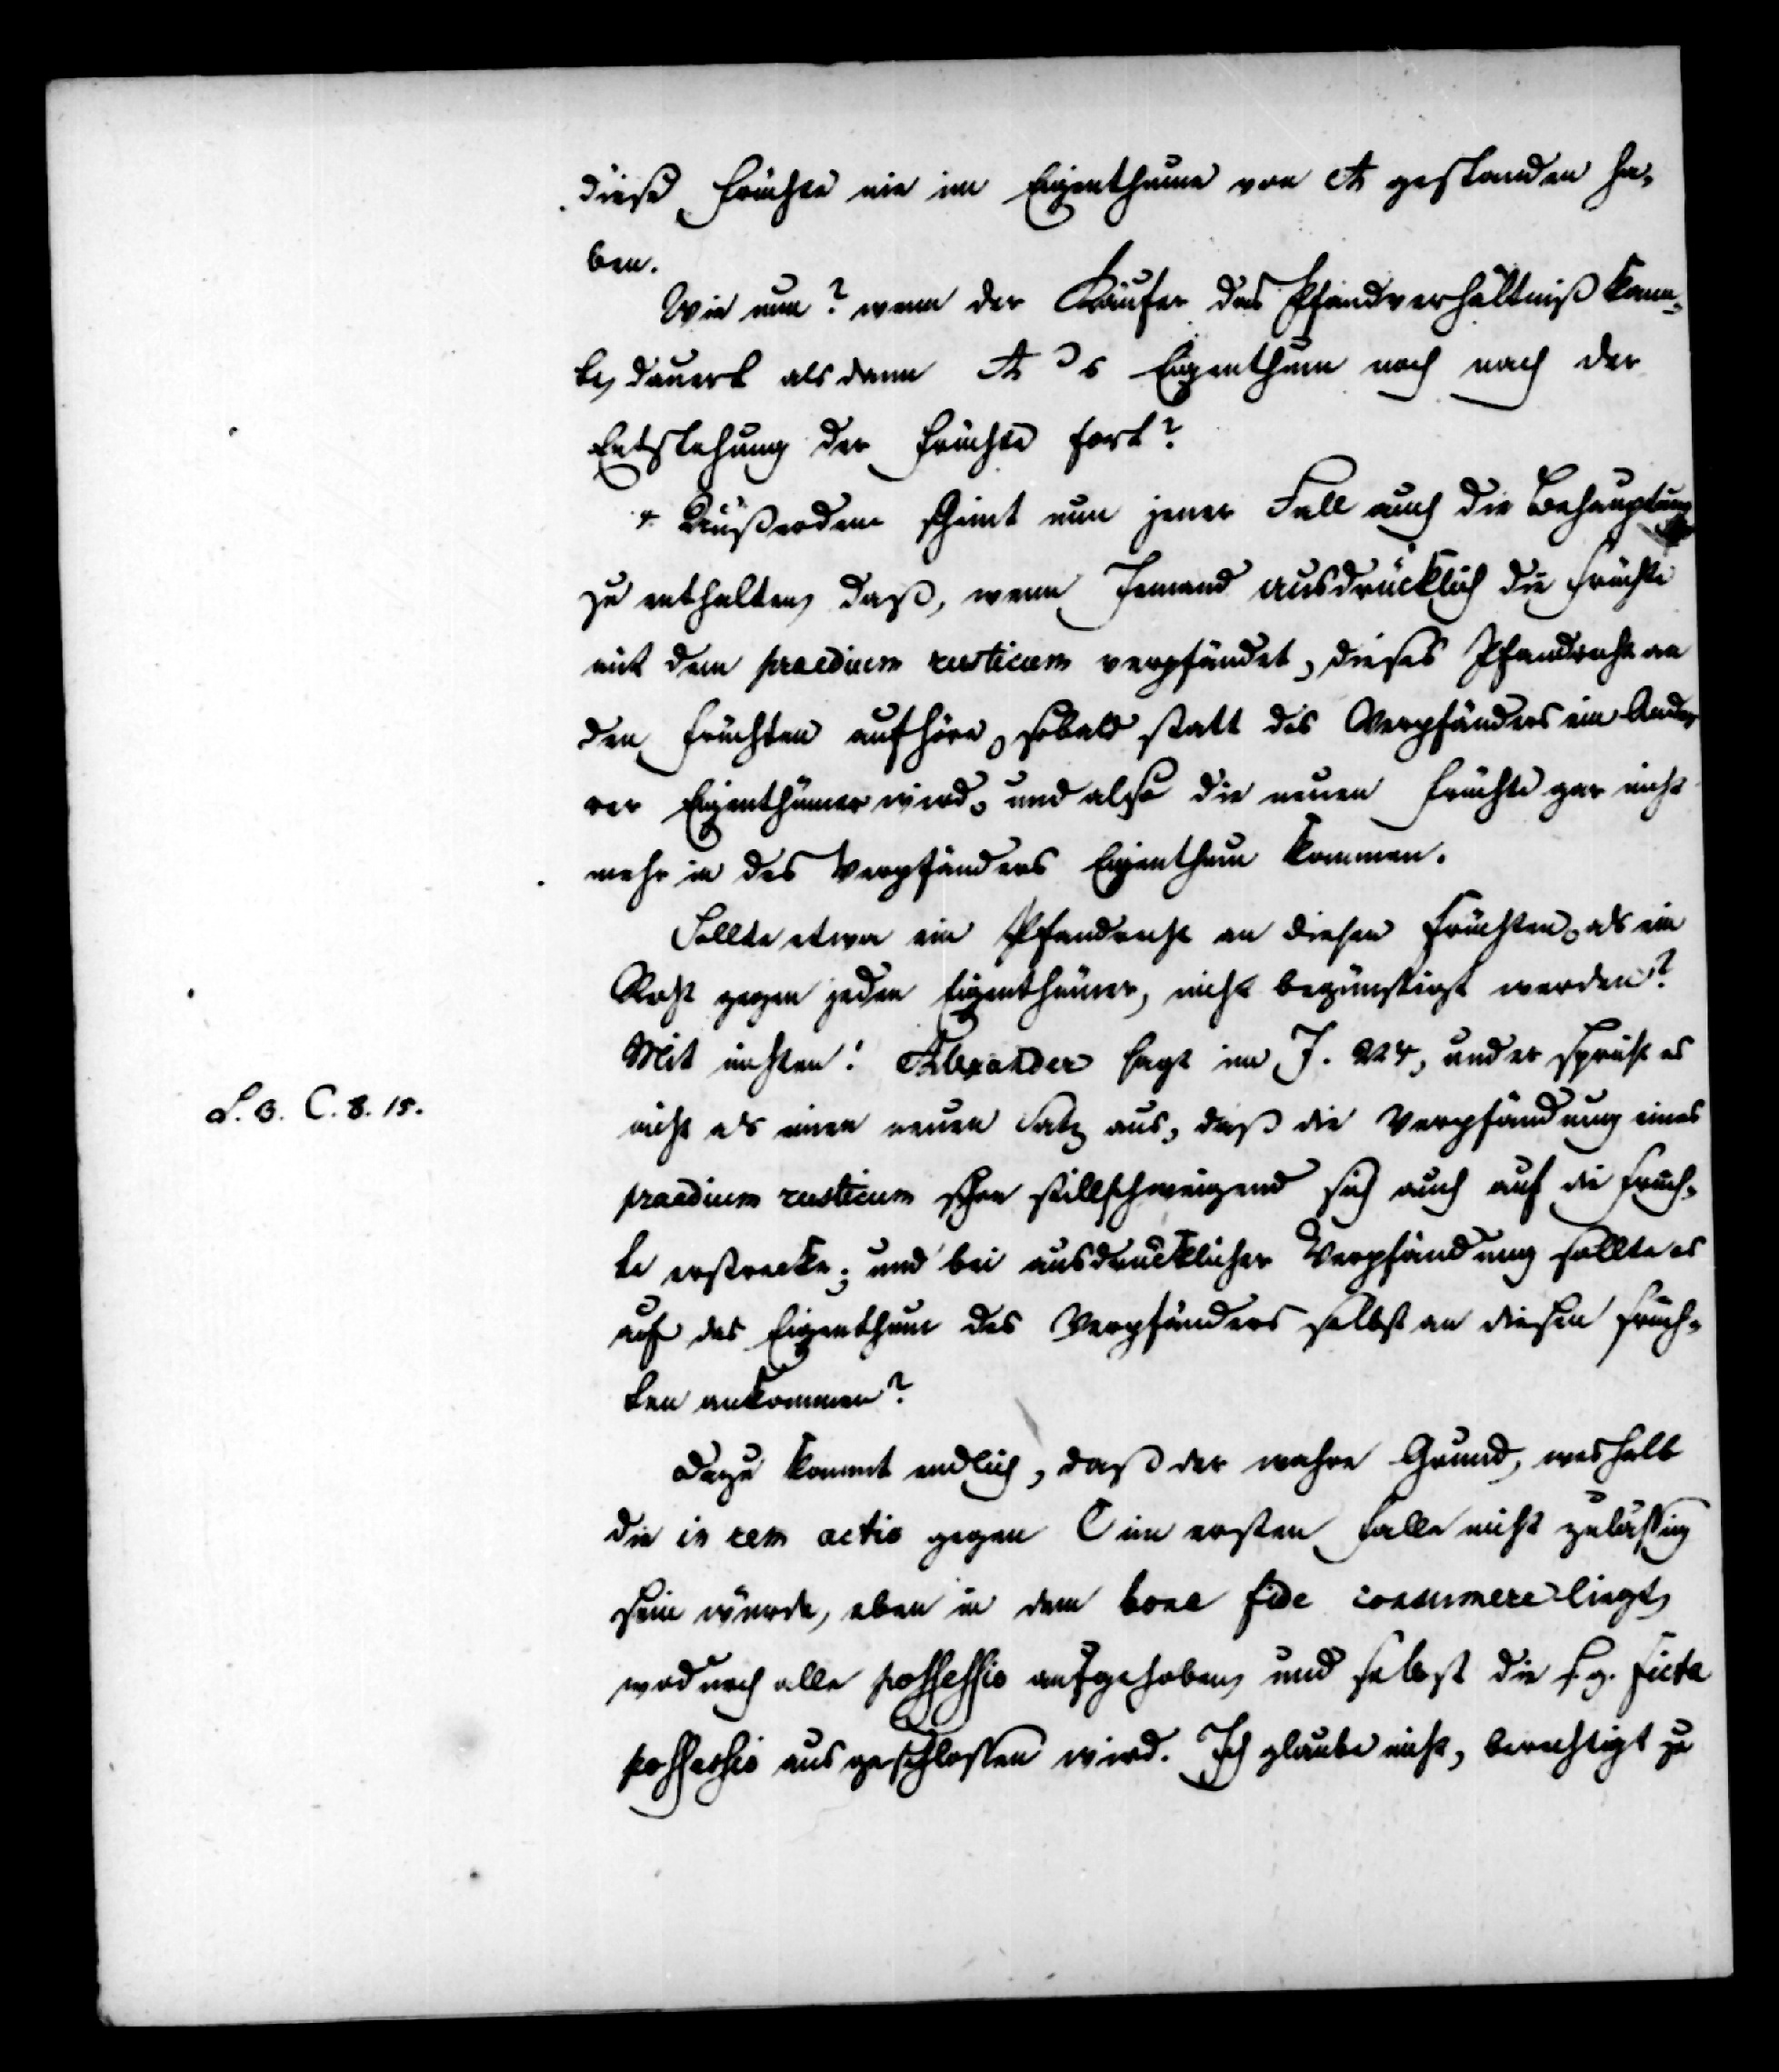 diese Früchte nie im Eigenthume von A gestanden ha-
ben.
Wie nun? wenn der Käufer das Pfandverhältniß kann-
te, dauert alsdann A's Eigenthum noch nach der
Entstehung der Früchte fort?
Außerdem scheint nun jener Fall auch die Behauptung
zu enthalten, daß, wenn Jemand ausdrücklich die Früchte
mit dem praedium rusticum verpfändet, dieses Pfandrecht an
den Früchten aufhöre, sobald statt des Verpfänders ein Ande-
rer Eigenthümer wird, und also die neuen Früchte gar nicht
mehr in des Verpfänders Eigenthum kommen.
Sollte etwa ein Pfandrecht an diesen Früchten, als ein
Recht gegen jeden Eigenthümer, nicht begünstigt werden?
Mit nichten! Alexander sagt im J. 224, und er spricht es
L. 3. C. 8. 15.
nicht als einen neuen Satz aus, daß die Verpfändung eines
praedium rusticum schon stillschweigend sich auch auf die Früch-
te erstrecke; und bei ausdrücklicher Verpfändung sollte es
auf das Eigenthum des Verpfänders selbst an diesen Früch-
ten ankommen?
Dazu kommt endlich, daß der wahre Grund, weshalb
die in rem actio gegen C im ersten Falle nicht zulässig
sein würde, eben in dem bona fide consumere liegt,
wodurch alle possessio aufgehoben, und selbst die s. g. ficta
possessio ausgeschlossen wird. Ich glaube nicht, berechtigt zu